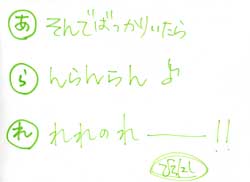 あ そんでばっかりいたら
ら んらんらん よ
れ れれのれ――!!